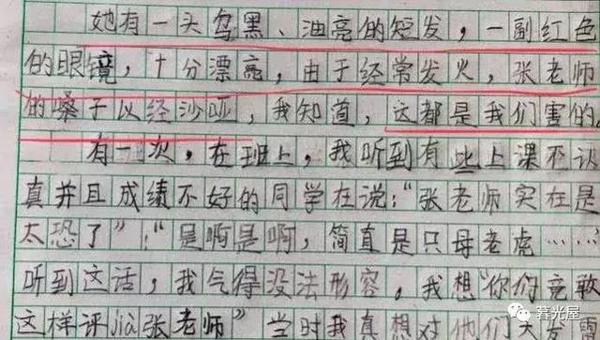 她有一头乌黑、油亮的短发，一副红色
的眼镜，十分漂亮，由于经常发火，张老师
的嗓子以经沙哑，我知道，这都是我们害的。
有一次，在班上，我听到有些上课不认
真并且成绩不好的同学在说：“张老师实在是
太恐了”；“是啊是啊，简直是只母老虎……
听到这话，我气得没法形容，我想“你们竟敢
这样评jià张老师”当时我真想对他们大发雷
暮光屋